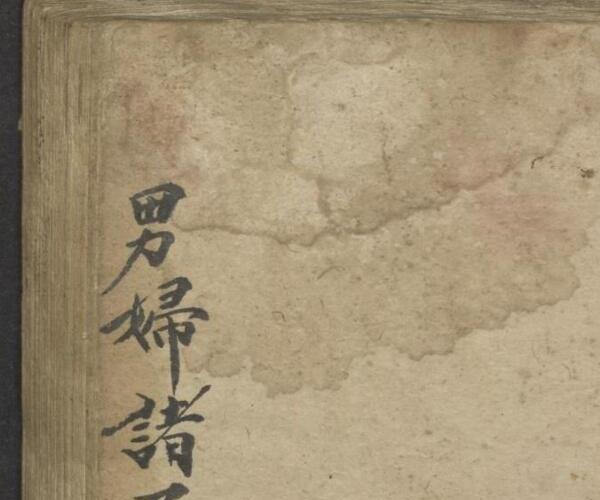 男婦諸